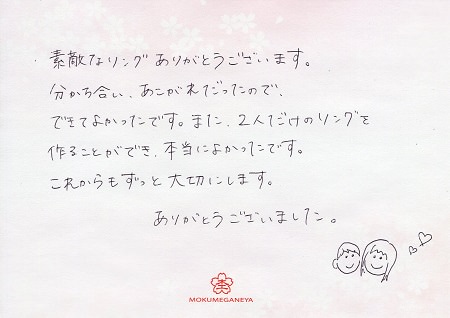 素敵なリングありがとうございます。
分かち合い、あこがれだったので、
できてよかったです。また、2人だけのリングを
作ることができ、本当によかったです。
これからもずっと大切にします。
ありがとうございました。
MOKUMEGANEYA